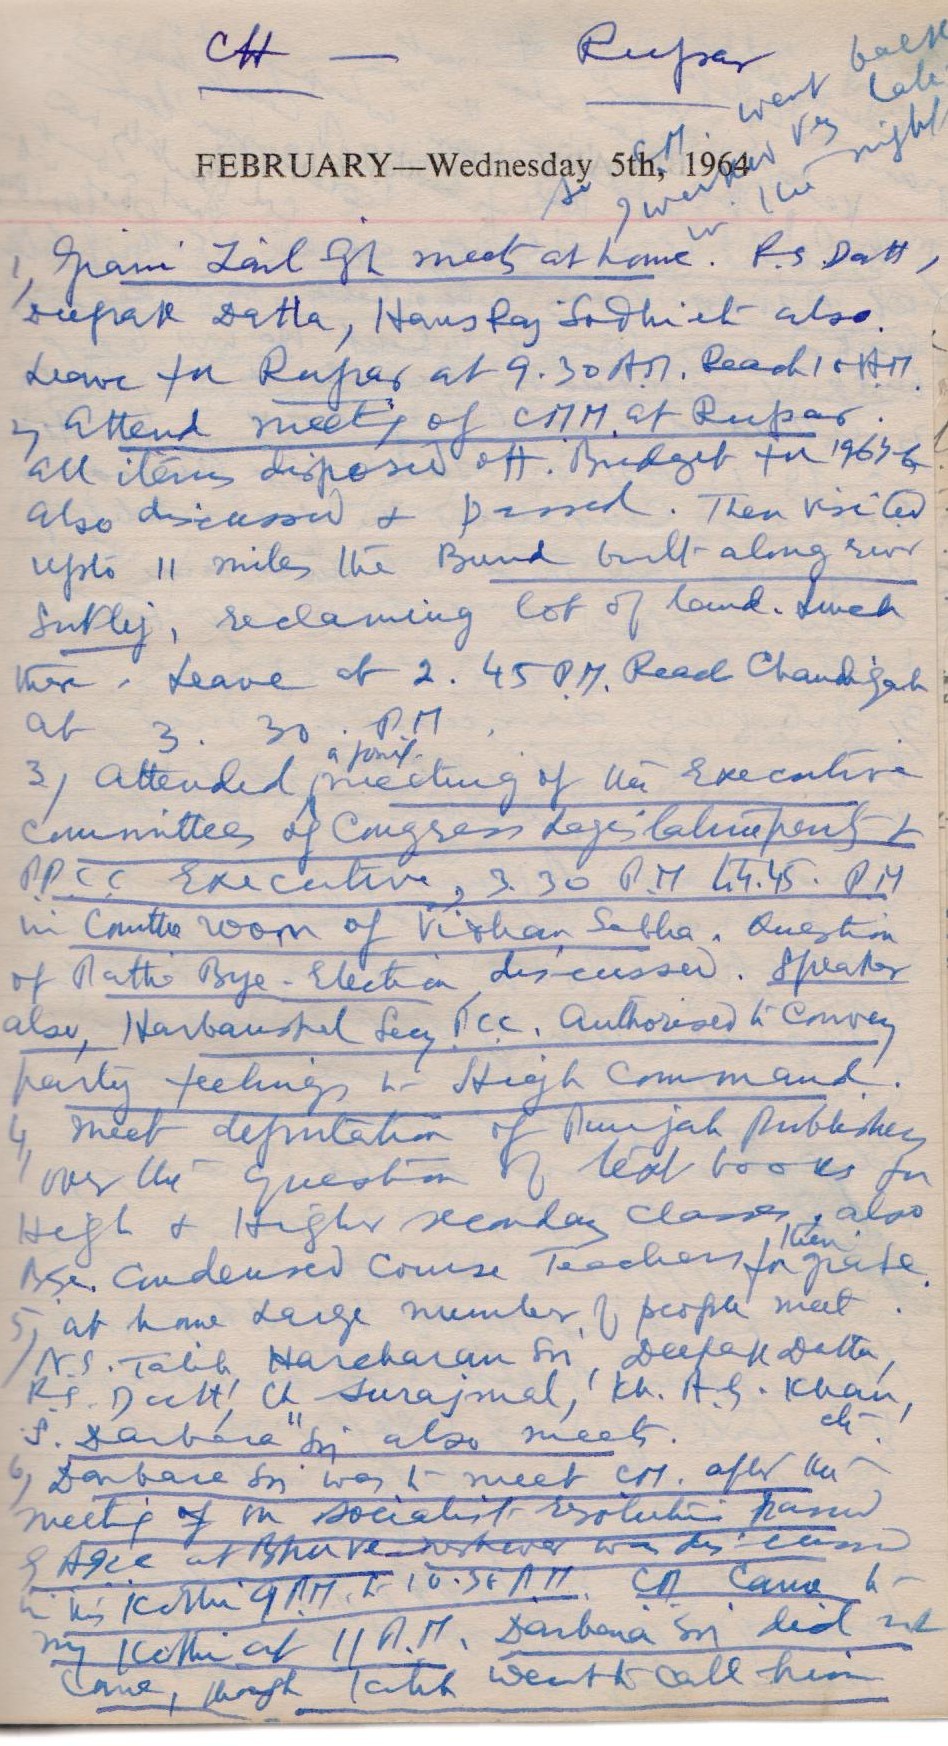 CH — Rupar
FEBRUARY—Wednesday 5th, 1964
so C.M. went back
I went very late
in the night
1, Giani Zail Sgh meets at home. R.S. Datt,
Deepak Datta, Hans Raj Sodhi etc also.
Leave for Rupar at 9.30 A.M. Reach 10 A.M.
2, Attend meeting of CMM at Rupar.
all items disposed off. Budget for
also discussed & passed. Then visited
upto 11 miles the Bund built along river
Sutlej, reclaiming lot of land. Lunch
there. Leave at 2.45 P.M. Reach Chandigah
at 3.30. P.M.
3, Attended a joint meeting of the Executive
Committees of Congress Legislature party &
P.P.C.C. Executive, 3.30 P.M. to 4.45. P.M
in Comttee room of Vidhan Sabha. Question
of Patti Bye-Election discussed. Speaker
also, Harbanspal Secy P.C.C. Authorised to Convey
party feelings to High Command.
4, Meet deputation of Punjab Publishers
over the question of text books for
High & Higher secondary classes, also
B.Sc. Condensed Course Teachers for their grade.
5, at home Large number of people meet.
N.S. Talib Harcharan Sn, Deepak Datta,
R.S. Datt, Ch Surajmal, Kh. A.G. Khan,
S. Darbara Sn also meets. etc.
6, Darbara Sn was to meet CM. after the
meeting of on socialist resolution passed
at was discussed
in his Kothi 9 P.M. to 10.30 P.M. CM Came to
my Kothi at 11 P.M. Darbara Sn did not
Come, though Talib went to call him